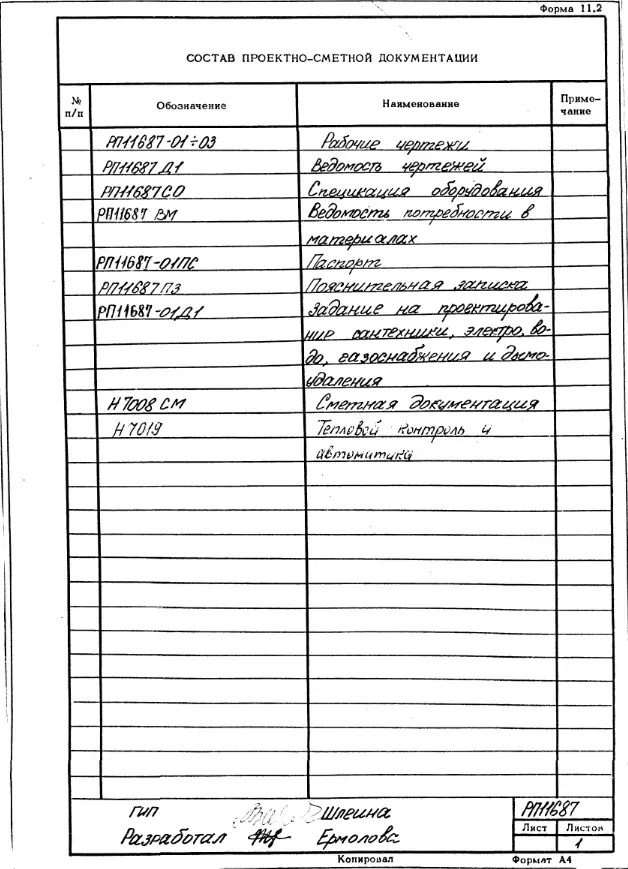 Форма 11.2
СОСТАВ ПРОЕКТНО-СМЕТНОЙ ДОКУМЕНТАЦИИ
№ п/п Обозначение Наименование Приме-
чание
РП11687-01÷03 Рабочие чертежи
РП11687Д1 Ведомость чертежей
РП11687СО Специкация оборудования
РП11687 ВМ Ведомость потребности в
материалах
РП11687-01ПС Паспорт
РП11687ПЗ Пояснительная записка
РП11687-01Д1 Задание на проектирова-
ние сантехники, электро, во-
до, газоснабжения и дымо-
удаления
Н7008 СМ Сметная документация
Н7019 Тепловой контроль и
автоматика
ГИП Шлеина РП11687
Лист Листов
Разработал Ермолова 1
Копировал Формат А4